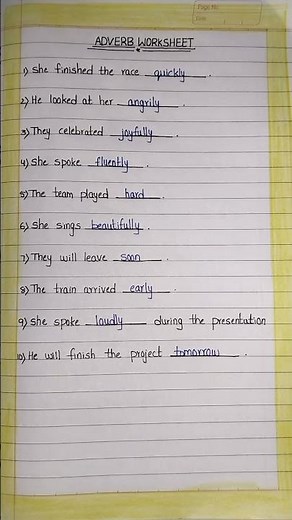 Page No.
Date
ADVERB WORKSHEET
1) She finished the race quickly.
2) He looked at her angrily.
3) They celebrated joyfully.
4) She spoke fluently.
5) The team played hard.
6) She sings beautifully.
7) They will leave soon.
8) The train arrived early.
9) She spoke loudly during the presentation
10) He will finish the project tomorrow.